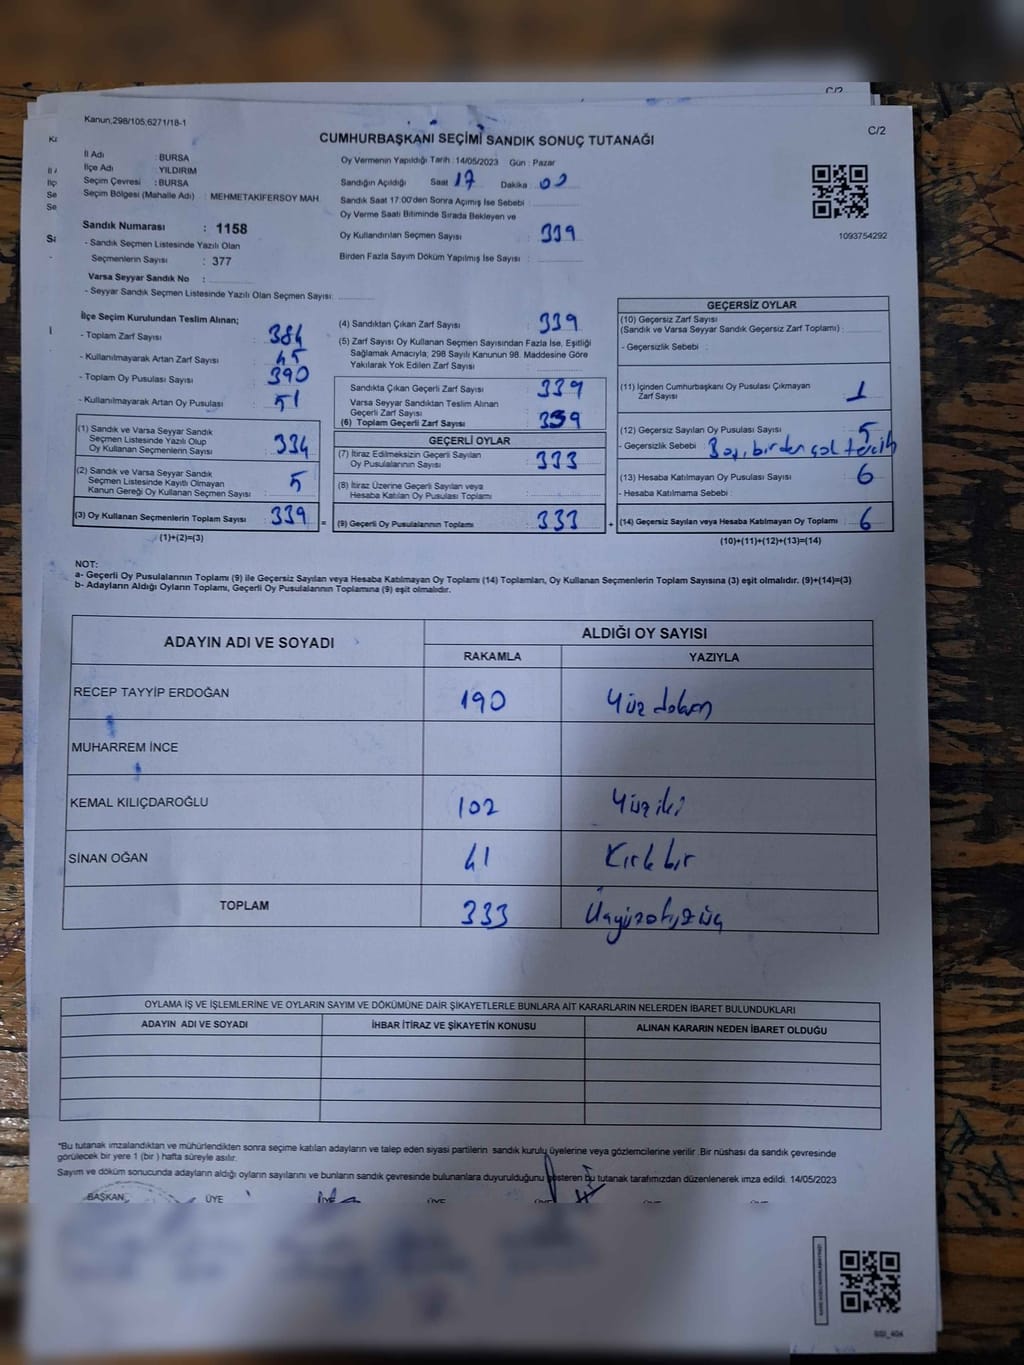 C/2
Kanun,298/105,6271/18-1
C/2
CUMHURBAŞKANI SEÇİMİ SANDIK SONUÇ TUTANAĞI
İl Adı : BURSA
İlçe Adı : YILDIRIM
Seçim Çevresi : BURSA
Seçim Bölgesi (Mahalle Adı) : MEHMETAKİFERSOY MAH.
Oy Vermenin Yapıldığı Tarih : 14/05/2023 Gün : Pazar
Sandığın Açıldığı Saat 17 Dakika 00
Sandık Saat 17:00'den Sonra Açımış İse Sebebi :
Oy Verme Saati Bitiminde Sırada Bekleyen ve
Oy Kullandırılan Seçmen Sayısı : 339
Birden Fazla Sayım Döküm Yapılmış İse Sayısı :
1093754292
Sandık Numarası : 1158
- Sandık Seçmen Listesinde Yazılı Olan
Seçmenlerin Sayısı : 377
Varsa Seyyar Sandık No :
- Seyyar Sandık Seçmen Listesinde Yazılı Olan Seçmen Sayısı:
İlçe Seçim Kurulundan Teslim Alınan;
- Toplam Zarf Sayısı : 384
- Kullanılmayarak Artan Zarf Sayısı : 45
- Toplam Oy Pusulası Sayısı : 390
- Kullanılmayarak Artan Oy Pusulası : 51
(1) Sandık ve Varsa Seyyar Sandık
Seçmen Listesinde Yazılı Olup
Oy Kullanan Seçmenlerin Sayısı : 334
(2) Sandık ve Varsa Seyyar Sandık
Seçmen Listesinde Kayıtlı Olmayan
Kanun Gereği Oy Kullanan Seçmen Sayısı : 5
(3) Oy Kullanan Seçmenlerin Toplam Sayısı : 339 =
(1)+(2)=(3)
(4) Sandıktan Çıkan Zarf Sayısı : 339
(5) Zarf Sayısı Oy Kullanan Seçmen Sayısından Fazla İse, Eşitliği
Sağlamak Amacıyla; 298 Sayılı Kanunun 98. Maddesine Göre
Yakılarak Yok Edilen Zarf Sayısı :
Sandıkta Çıkan Geçerli Zarf Sayısı : 339
Varsa Seyyar Sandıktan Teslim Alınan
Geçerli Zarf Sayısı :
(6) Toplam Geçerli Zarf Sayısı : 339
GEÇERLİ OYLAR
(7) İtiraz Edilmeksizin Geçerli Sayılan
Oy Pusulalarının Sayısı : 333
(8) İtiraz Üzerine Geçerli Sayılan veya
Hesaba Katılan Oy Pusulası Toplamı :
(9) Geçerli Oy Pusulalarının Toplamı : 333 +
GEÇERSİZ OYLAR
(10) Geçersiz Zarf Sayısı
(Sandık ve Varsa Seyyar Sandık Geçersiz Zarf Toplamı) :
- Geçersizlik Sebebi :
(11) İçinden Cumhurbaşkanı Oy Pusulası Çıkmayan
Zarf Sayısı : 1
(12) Geçersiz Sayılan Oy Pusulası Sayısı : 5
- Geçersizlik Sebebi : birden çok tercih
(13) Hesaba Katılmayan Oy Pusulası Sayısı : 6
- Hesaba Katılmama Sebebi :
(14) Geçersiz Sayılan veya Hesaba Katılmayan Oy Toplamı : 6
(10)+(11)+(12)+(13)=(14)
NOT:
a- Geçerli Oy Pusulalarının Toplamı (9) ile Geçersiz Sayılan veya Hesaba Katılmayan Oy Toplamı (14) Toplamları, Oy Kullanan Seçmenlerin Toplam Sayısına (3) eşit olmalıdır. (9)+(14)=(3)
b- Adayların Aldığı Oyların Toplamı, Geçerli Oy Pusulalarının Toplamına (9) eşit olmalıdır.
ADAYIN ADI VE SOYADI ALDIĞI OY SAYISI
RAKAMLA YAZIYLA
RECEP TAYYİP ERDOĞAN 190 Yüz doksan
MUHARREM İNCE
KEMAL KILIÇDAROĞLU 102 Yüz iki
SİNAN OĞAN 41 Kırk bir
TOPLAM 333 Üçyüzotuzüç
OYLAMA İŞ VE İŞLEMLERİNE VE OYLARIN SAYIM VE DÖKÜMÜNE DAİR ŞİKAYETLERLE BUNLARA AİT KARARLARIN NELERDEN İBARET BULUNDUKLARI
ADAYIN ADI VE SOYADI İHBAR İTİRAZ VE ŞİKAYETİN KONUSU ALINAN KARARIN NEDEN İBARET OLDUĞU
"Bu tutanak imzalandıktan ve mühürlendikten sonra seçime katılan adayların ve talep eden siyasi partilerin sandık kurulu üyelerine veya gözlemcilerine verilir .Bir nüshası da sandık çevresinde
görülecek bir yere 1 (bir ) hafta süreyle asılır.
Sayım ve döküm sonucunda adayların aldığı oyların sayılarını ve bunların sandık çevresinde bulunanlara duyurulduğunu gösteren bu tutanak tarafımızdan düzenlenerek imza edildi. 14/05/2023
BAŞKAN ÜYE ÜYE ÜYE ÜYE